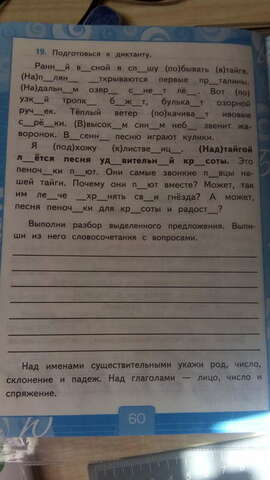 19. Подготовься к диктанту.
Ранн__й в__сной я сп__шу (по)бывать (в)тайге.
(На)п__лян__ __ткрываются первые пр__талины.
(На)дальн__м озер__ с__не__т лё__. Вот (по)
узк__й тропк__ б__ж__т, булька__т озорной
руч__ек. Тёплый ветер (по)качива__т ивовые
с__рё__ки. (В)высок__м син__м неб__ звенит жа-
воронок. В__сенн__ песню играют кулики.
Я (под)хожу (к)листве__иц__. (Над)тайгой
л__ётся песня уд__вительн__й кр__соты. Это
пеноч__ки п__ют. Они самые звонкие п__вцы на-
шей тайги. Почему они п__ют вместе? Может, так
им ле__че __хр__нять св__и гнёзда? А может,
песня пеноч__ки для кр__соты и радост__?
Выполни разбор выделенного предложения. Выпи-
ши из него словосочетания с вопросами.
Над именами существительными укажи род, число,
склонение и падеж. Над глаголами — лицо, число и
спряжение.
60